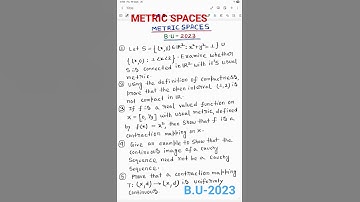 METRIC SPACES
METRIC SPACES
B.U-2023
① Let S = {(x,y)∈ℝ²: x²+y²=1} ∪
{(x,0): 1<x<2}. Examine whether
S is connected in ℝ² with it's usual
metric.
② Using the definition of compactness,
prove that the open interval (1,2) is
not compact in ℝ.
③ If f is a real valued function on
X = [0, ⅓] with usual metric, defined
by f(x) = x², then show that f is a
contraction mapping on X.
④ Give an example to show that the
continuous image of a cauchy
sequence need not be a cauchy
sequence.
⑤ Prove that a contraction mapping
T: (X,d) → (X,d) is uniformly
continuous.
B.U-2023